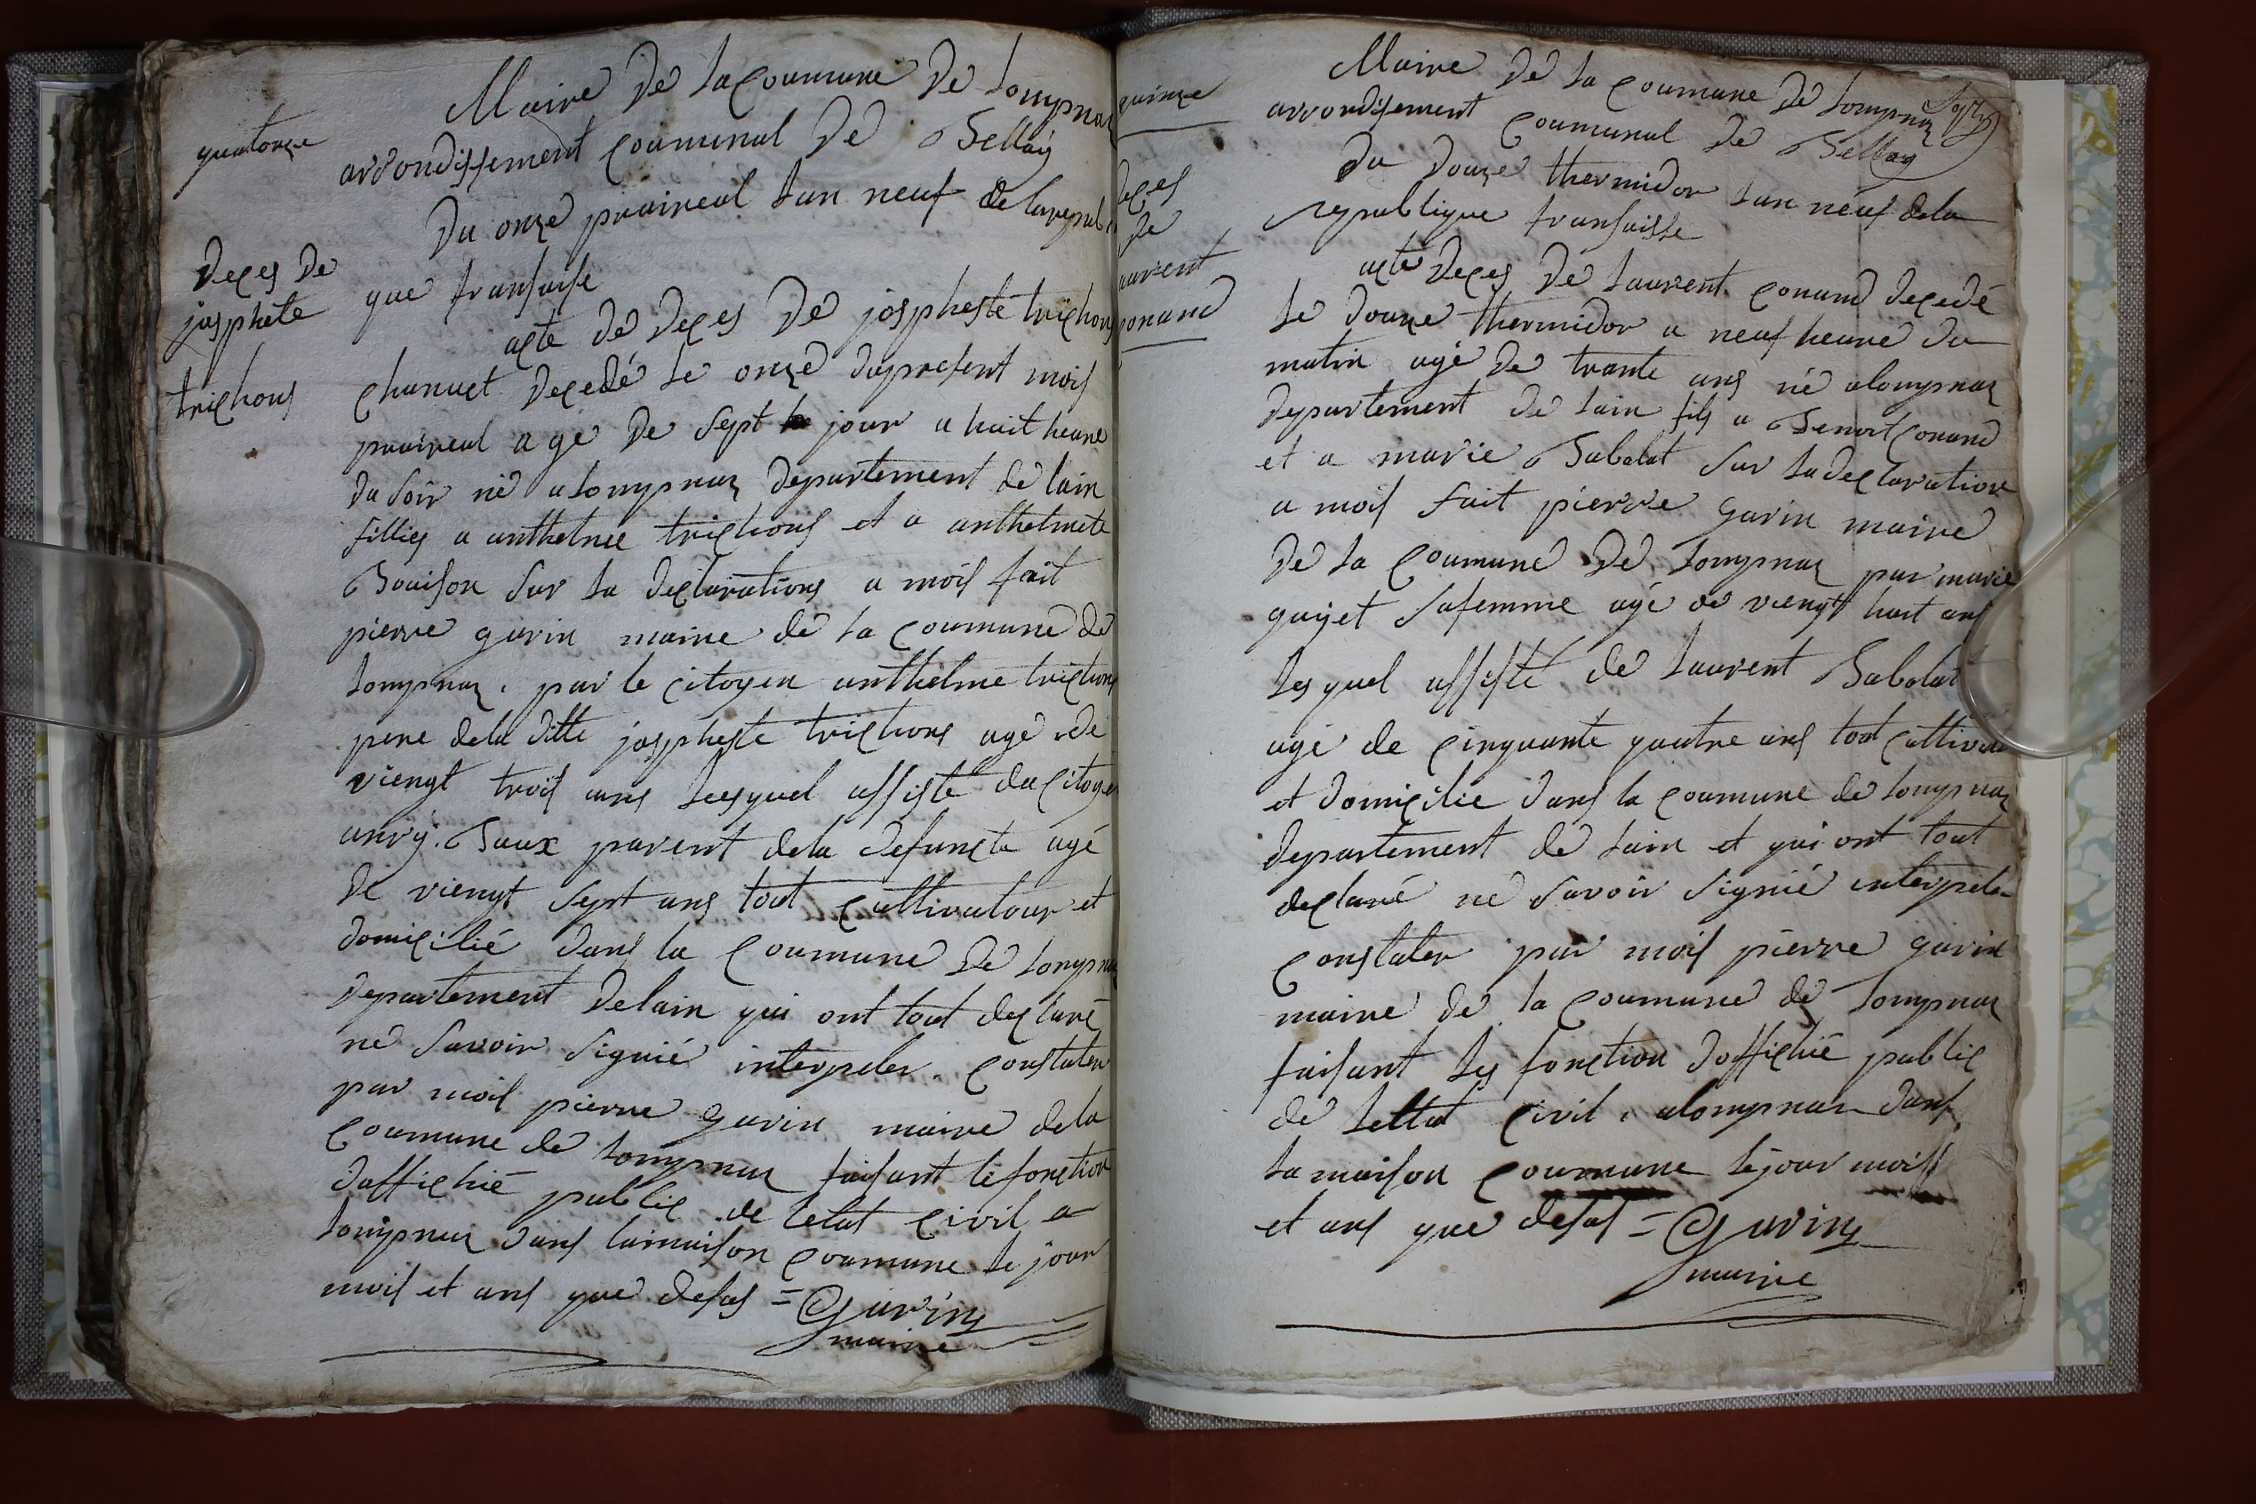 quatorze
Deces De
josphete
trichons
Maire De la Coumune De Lompnaz
arrondissement Coumunal De Bellay
Du onze praireal lan neuf de la republi
que fransaise
acte de Deces De jospheste trichons
Chanuet Decedé le onze du present mois
praireal age De sept jour a huit heure
du soir né a Lompnaz Departement de lain
fillies a anthelme trichons et a anthelmete
Bouison sur la Declarations a mois fait
pierre garin maire de la Coumune de
Lompnaz. par le Citoyen anthelme trichons
pere de la ditte jospheste trichons age de
viengt trois ans lesquel assiste du Citoyen
anry. Baux parent de la defuncte agé
De viengt sept ans tout Cultivatour et
domicilié dans la Coumune De Lompnaz
Departement De lain qui ont tout declaré
ne savoir signié interpeler. Constater
par mois pierre garin maire de la
Coumune de Lompnaz faisant le fonction
daffichié public de letat Civil a
Lompnaz dans la maison Coumune le jour
mois et ans que desus = Garin
maire
quinze
Deces
De
laurent
Conand
Maire De la Coumune De Lompnaz
arrondisement Coumunal De Bellay
Du Douze thermidor lan neuf de la
republique fransaisse
acte Deces De laurent Conand decedé
le Douze thermidor a neuf heure du
matin agé De trante ans né a lompnaz
Departement de lain fils a Benoit Conand
et a marie Babolat sur la declaration
a mois fait pierre garin maire
De la Coumune De Lompnaz par marie
guijet sa femme agé de viengt huit ans
lesquel assisté de laurent Babolat
agé de Cinquante quatre ans tout Cultivat
et domicilie dans la Coumune de Lompnaz
departement de lain et qui ont tout
declaré ne savoir signié interpeler
Constater par mois pierre garin
maire de la Coumune de Lompnaz
faisant les fonction daffichié public
de lettat Civil. a lompnaz dans
la maison Coumune le jour mois
et ans que desus = Garin
maire